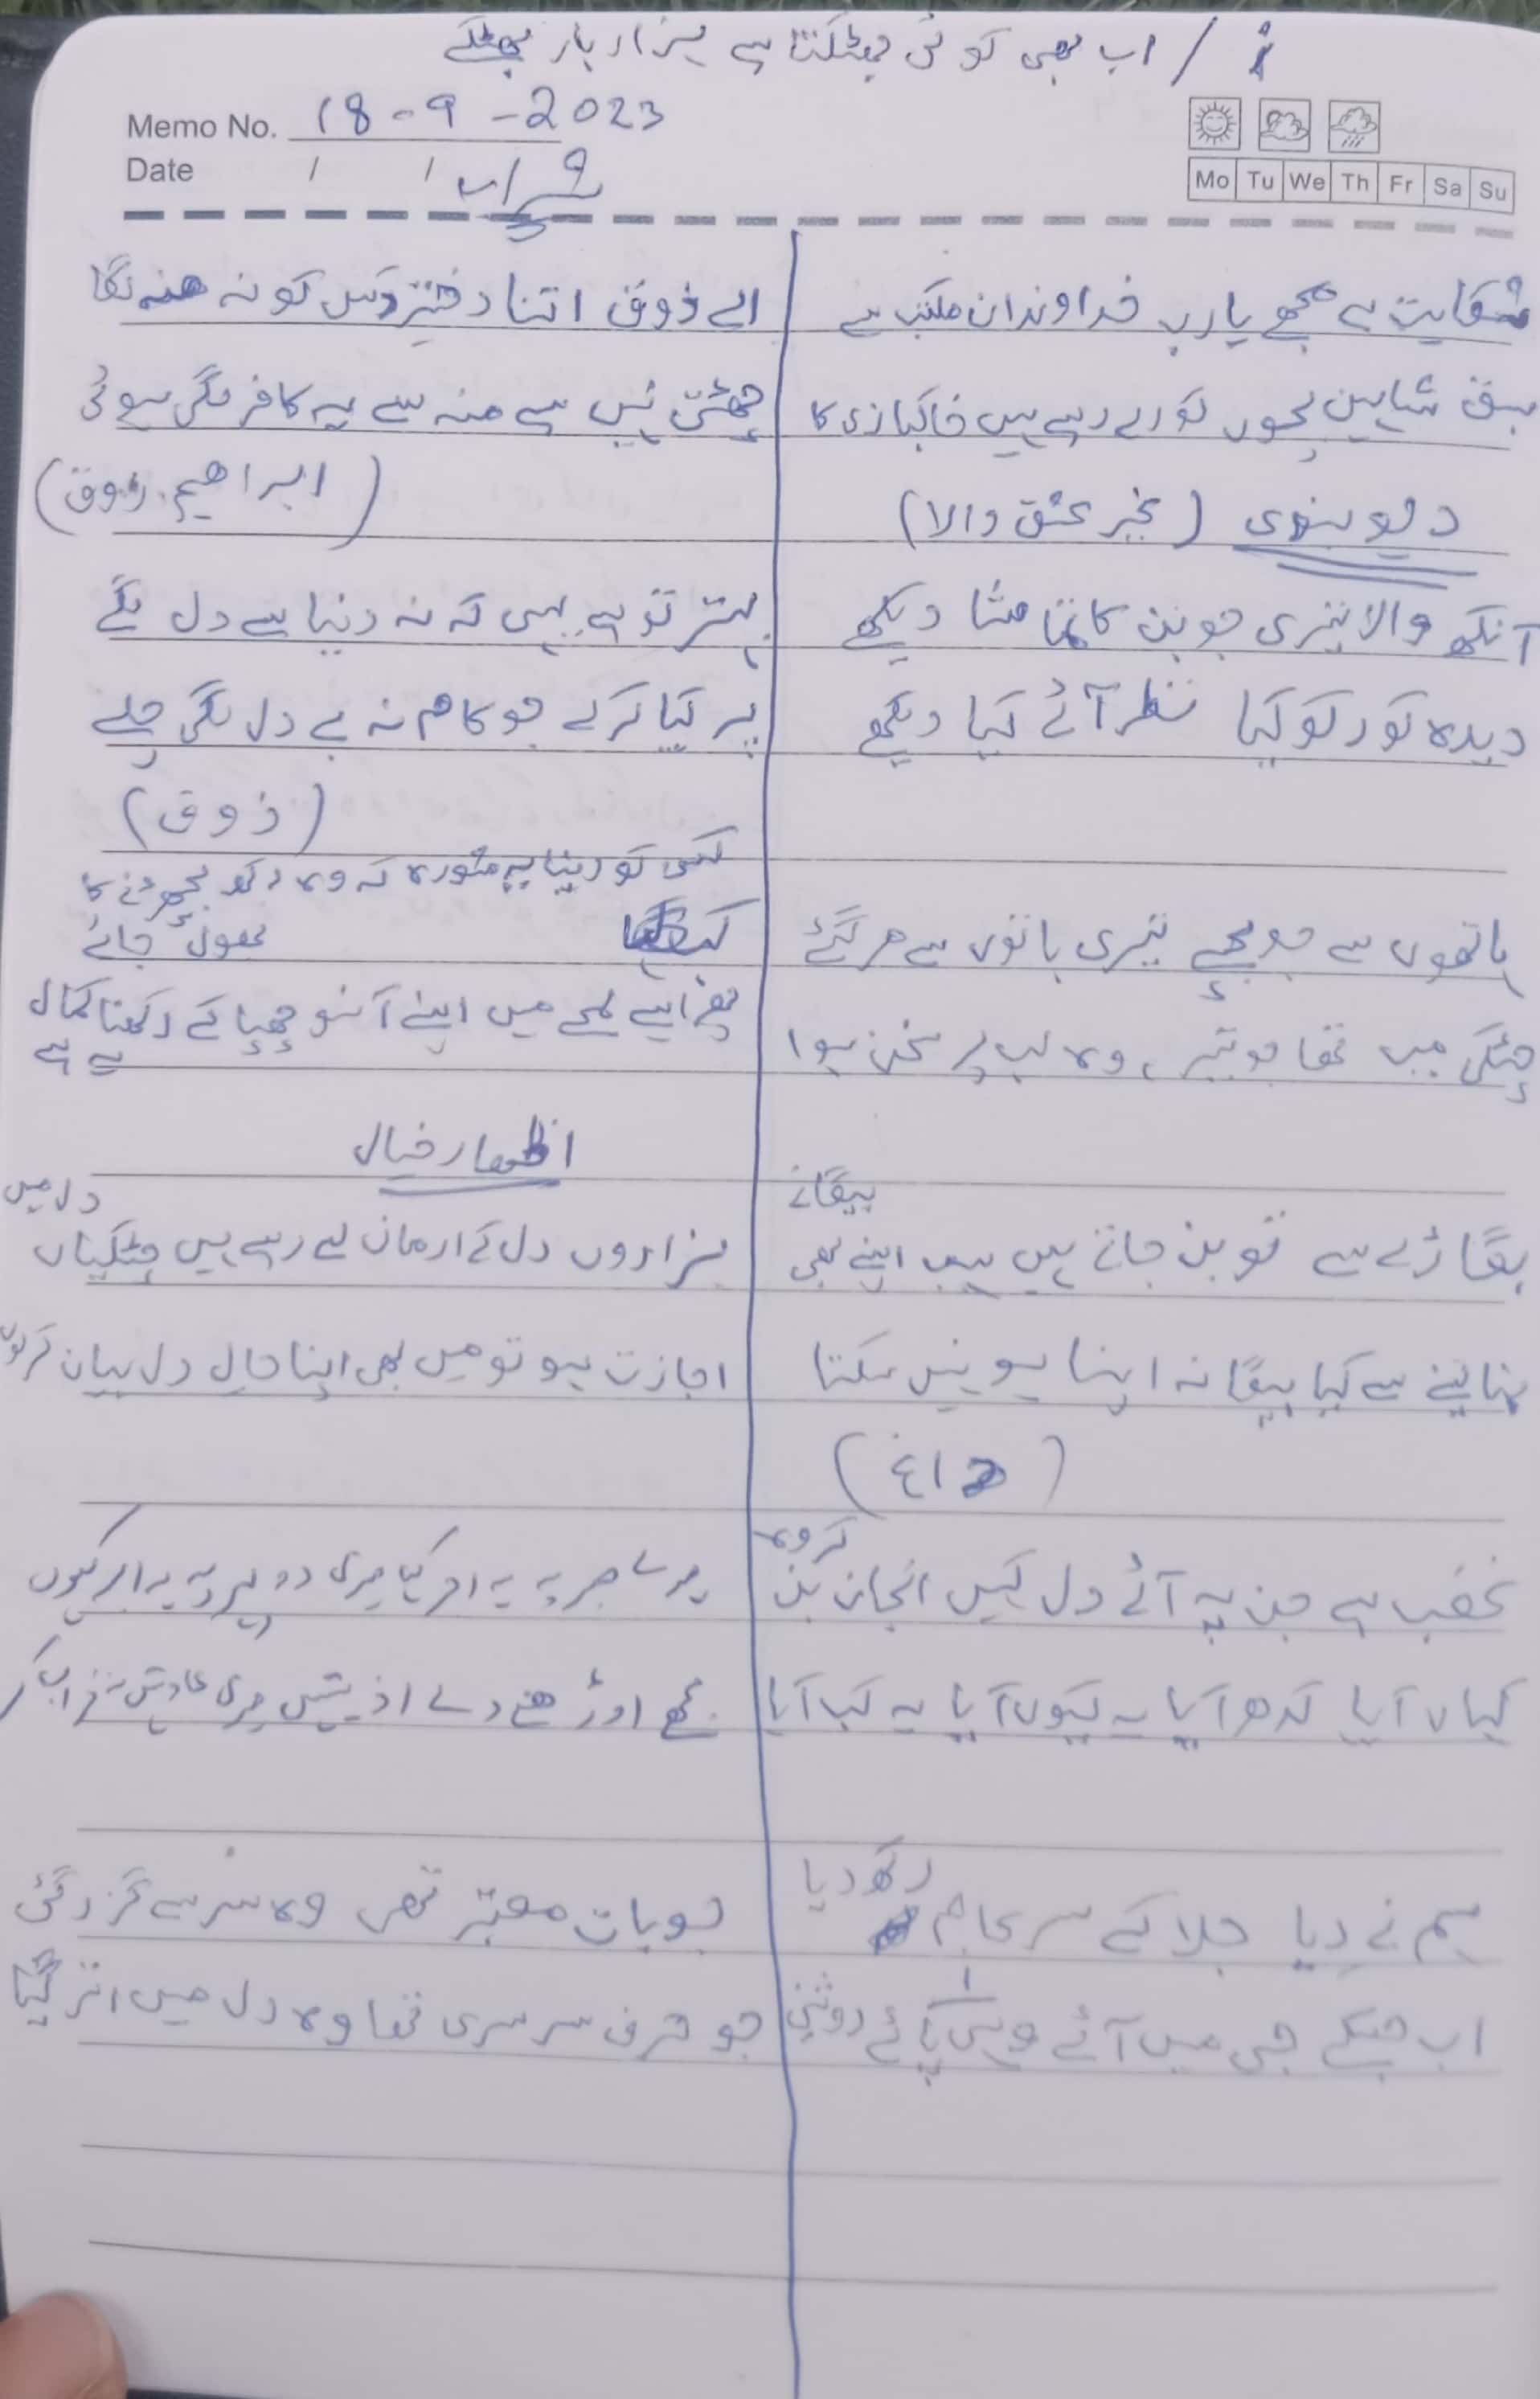 اب بھی کوئی بھٹکتا ہے ہزار بار بھٹکے
Memo No. 18-9-2023
Date / /
شراب
Mo Tu We Th Fr Sa Su
شکایت ہے مجھے یارب خداوندان مکتب سے
سبق شاہین بچوں کو دے رہے ہیں خاکبازی کا
دیوبندی (بخیر عشق والا)
آنکھ والا تیری جوبن کا تماشا دیکھے
دیدہ کور کو کیا نظر آئے کیا دیکھے
ہاتھوں سے جو بچے تیری باتوں سے مر گئے
چٹکی میں تھا جو تیر، وہ لب پر سخن ہوا
بیگانے
بگاڑے سے تو بن جاتے ہیں سب اپنے بھی
بنانے سے کیا بیگانہ اپنا ہو نہیں سکتا
(داغ)
غضب ہے جن پہ آئے دل کہیں انجان بن کر وہ
کہاں آیا کدھر آیا یہ کیوں آیا یہ کب آیا
ہم نے دیا جلا کے سر عام رکھ دیا
اب جسکے جی میں آئے وہی پائے روشنی
اے ذوق اتنا دختر رس کو نہ منہ لگا
چھٹتی نہیں ہے منہ سے یہ کافر لگی ہوئی
(ابراہیم ذوق)
بہتر تو ہے یہی کہ نہ دنیا سے دل لگے
پر کیا کرے جو کام نہ بے دل لگی چلے
(ذوق)
کسی کو دینا یہ مشورہ کہ وہ دکھ بچھڑنے کا
بھول جائے
پھر ایسے لمحے میں اپنے آنسو چھپا کے رکھنا کمال
یہ ہے
اظہار خیال
ہزاروں دل کے ارمان لے رہے ہیں چٹکیاں دل میں
اجازت ہو تو میں بھی اپنا حال دل بیان کر لوں
میرے صبر پہ یہ اجر کیا میری دوپہر پہ یہ ابر کیوں
مجھے اوڑھنے دے اذیتیں میری عادتیں نہ خراب کر
جو بات معتبر تھی وہ سر سے گزر گئی
جو حرف سرسری تھا وہ دل میں اتر گیا